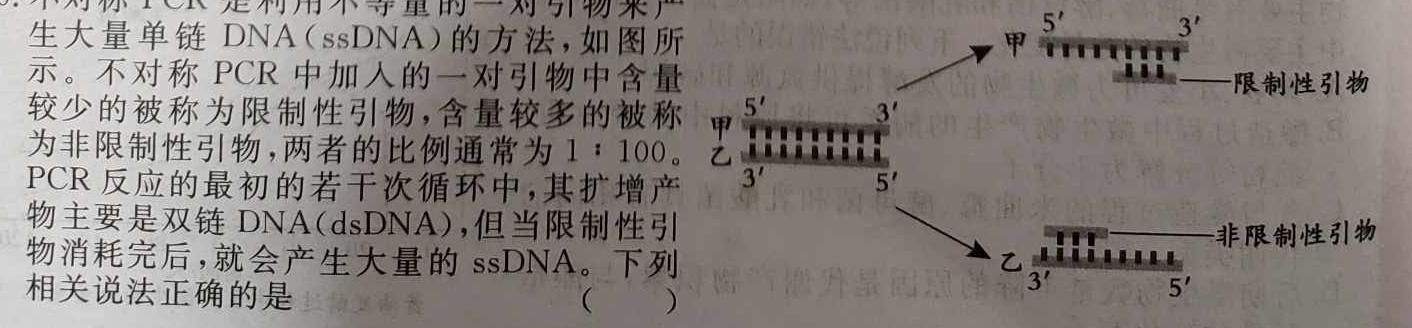 不对称 PCR 是利用不等量的一对引物来产
生大量单链 DNA(ssDNA)的方法,如图所
示。不对称 PCR 中加入的一对引物中含量
较少的被称为限制性引物,含量较多的被称
为非限制性引物,两者的比例通常为 1∶100。
PCR 反应的最初的若干次循环中,其扩增产
物主要是双链 DNA(dsDNA),但当限制性引
物消耗完后,就会产生大量的 ssDNA。下列
相关说法正确的是 ( )
5′ 3′
甲
限制性引物
5′ 3′
甲
乙
3′ 5′
非限制性引物
乙
3′ 5′